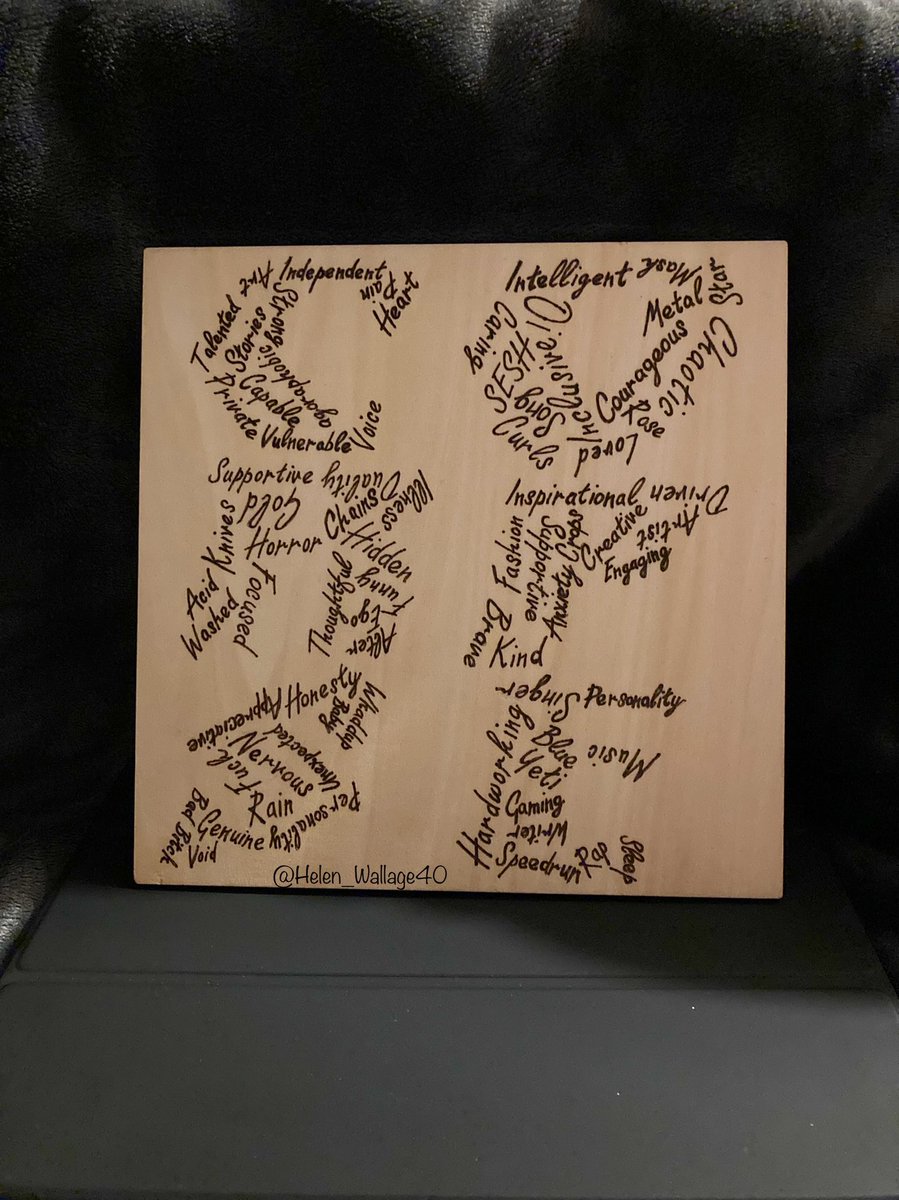 Independent
Art
Pain
Heart
Talented
Stories
Strong
Agoraphobic
Private
Capable
Vulnerable
Voice
Intelligent
Mask
Star
Metal
Caring
HSFSH
Inclusive
Song
Curls
Courageous
Chaotic
Rose
Loved
Supportive
Duality
Illness
Gold
Chains
Knives
Horror
Hidden
Acid
Washed
Focused
Thoughtful
Funny
Alter
Ego
Inspirational
Driven
Artist
Creative
Engaging
Fashion
Supportive
Crops
Anxiety
Brave
Kind
Appreciative
Honesty
Whaddup
Baby
Unexpected
Nervous
Fuck
Rain
Personality
Bad Bitch
Genuine
Void
Singer
Personality
Hardworking
Blue
Yeti
Music
Gaming
Writer
Speedrun
Sleep
@Helen_Wallage40